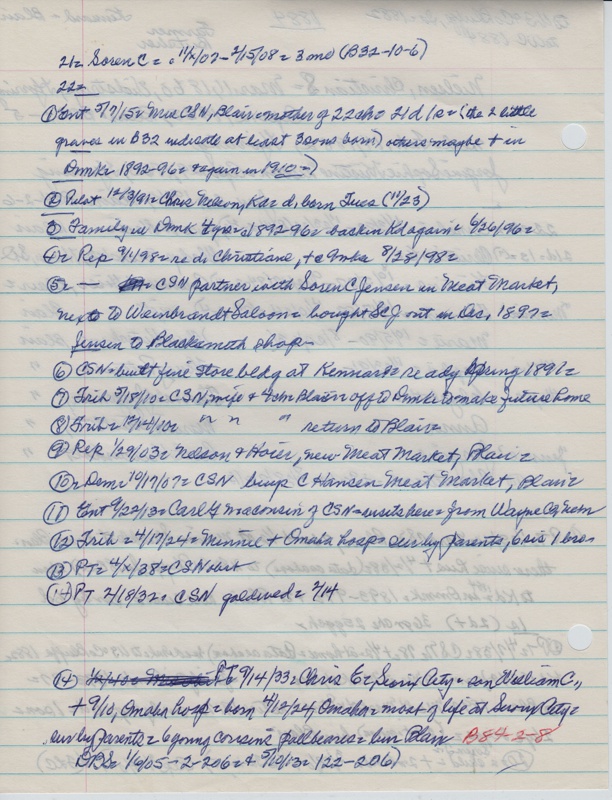 21= Soren C = 11/x/07 - 2/15/08 = 3 mo (B32-10-6)
22=
① Ent 5/7/15 = Mrs CSN, Blair = mother of 22 cho 21 d 1s = (the 2 little
graves in B32 indicate at least 3 sons born) others maybe + in
Dmk = 1892-96 = & again in 1910 =)
② Pilot 12/3/91 = Chris Nelson, Ka = d, born Tues (11/23)
③ Family in Dmk 4 yrs = 1892-96 = back in Kd again = 6/26/96 =
4) = Rep 9/1/98 = re d, Christiane, + @ Omka 8/28/98 =
5) = — CSN partner with Soren C Jensen in Meat Market,
next to Weinbrandt Saloon = bought SCJ out in Dec, 1897 =
Jensen to Blacksmith shop -
⑥ CSN = built fine store bldg at Kennard = ready Spring 1896 =
⑦ Trib 5/18/10 = CSN, wife & 4 ch Blair = off to Dmk to make future home
⑧ Trib = 12/14/10 = " " " return to Blair
⑨ Rep 1/29/03 = Nelson & Hoier, new Meat Market, Blair =
10) = Dem = 10/17/07 = CSN buys C Hansen Meat Market, Blair =
⑪ Ent 9/22/13 = Carl G Wisconsin of CSN = visits here = from Wayne Co, Nebr
⑫ Trib = 4/17/24 = Minnie + Omaha hosp = sur by parents, 6 sis 1 bro =
⑬ PT = 4/x/38 = CSN obit
⑭ PT 2/18/32 = CSN gold wed = 2/14
⑭ PT 9/14/33 = Chris E =, Sioux City = son William C.,
+ 9/10, Omaha hosp = born 4/12/24 Omaha = most of life at Sioux City =
sur by parents = 6 young cousins pallbearers = bur Blair B84-2-8
DBS = 1/6/05 - 2-206 = + 9/19/13 = 122-206)